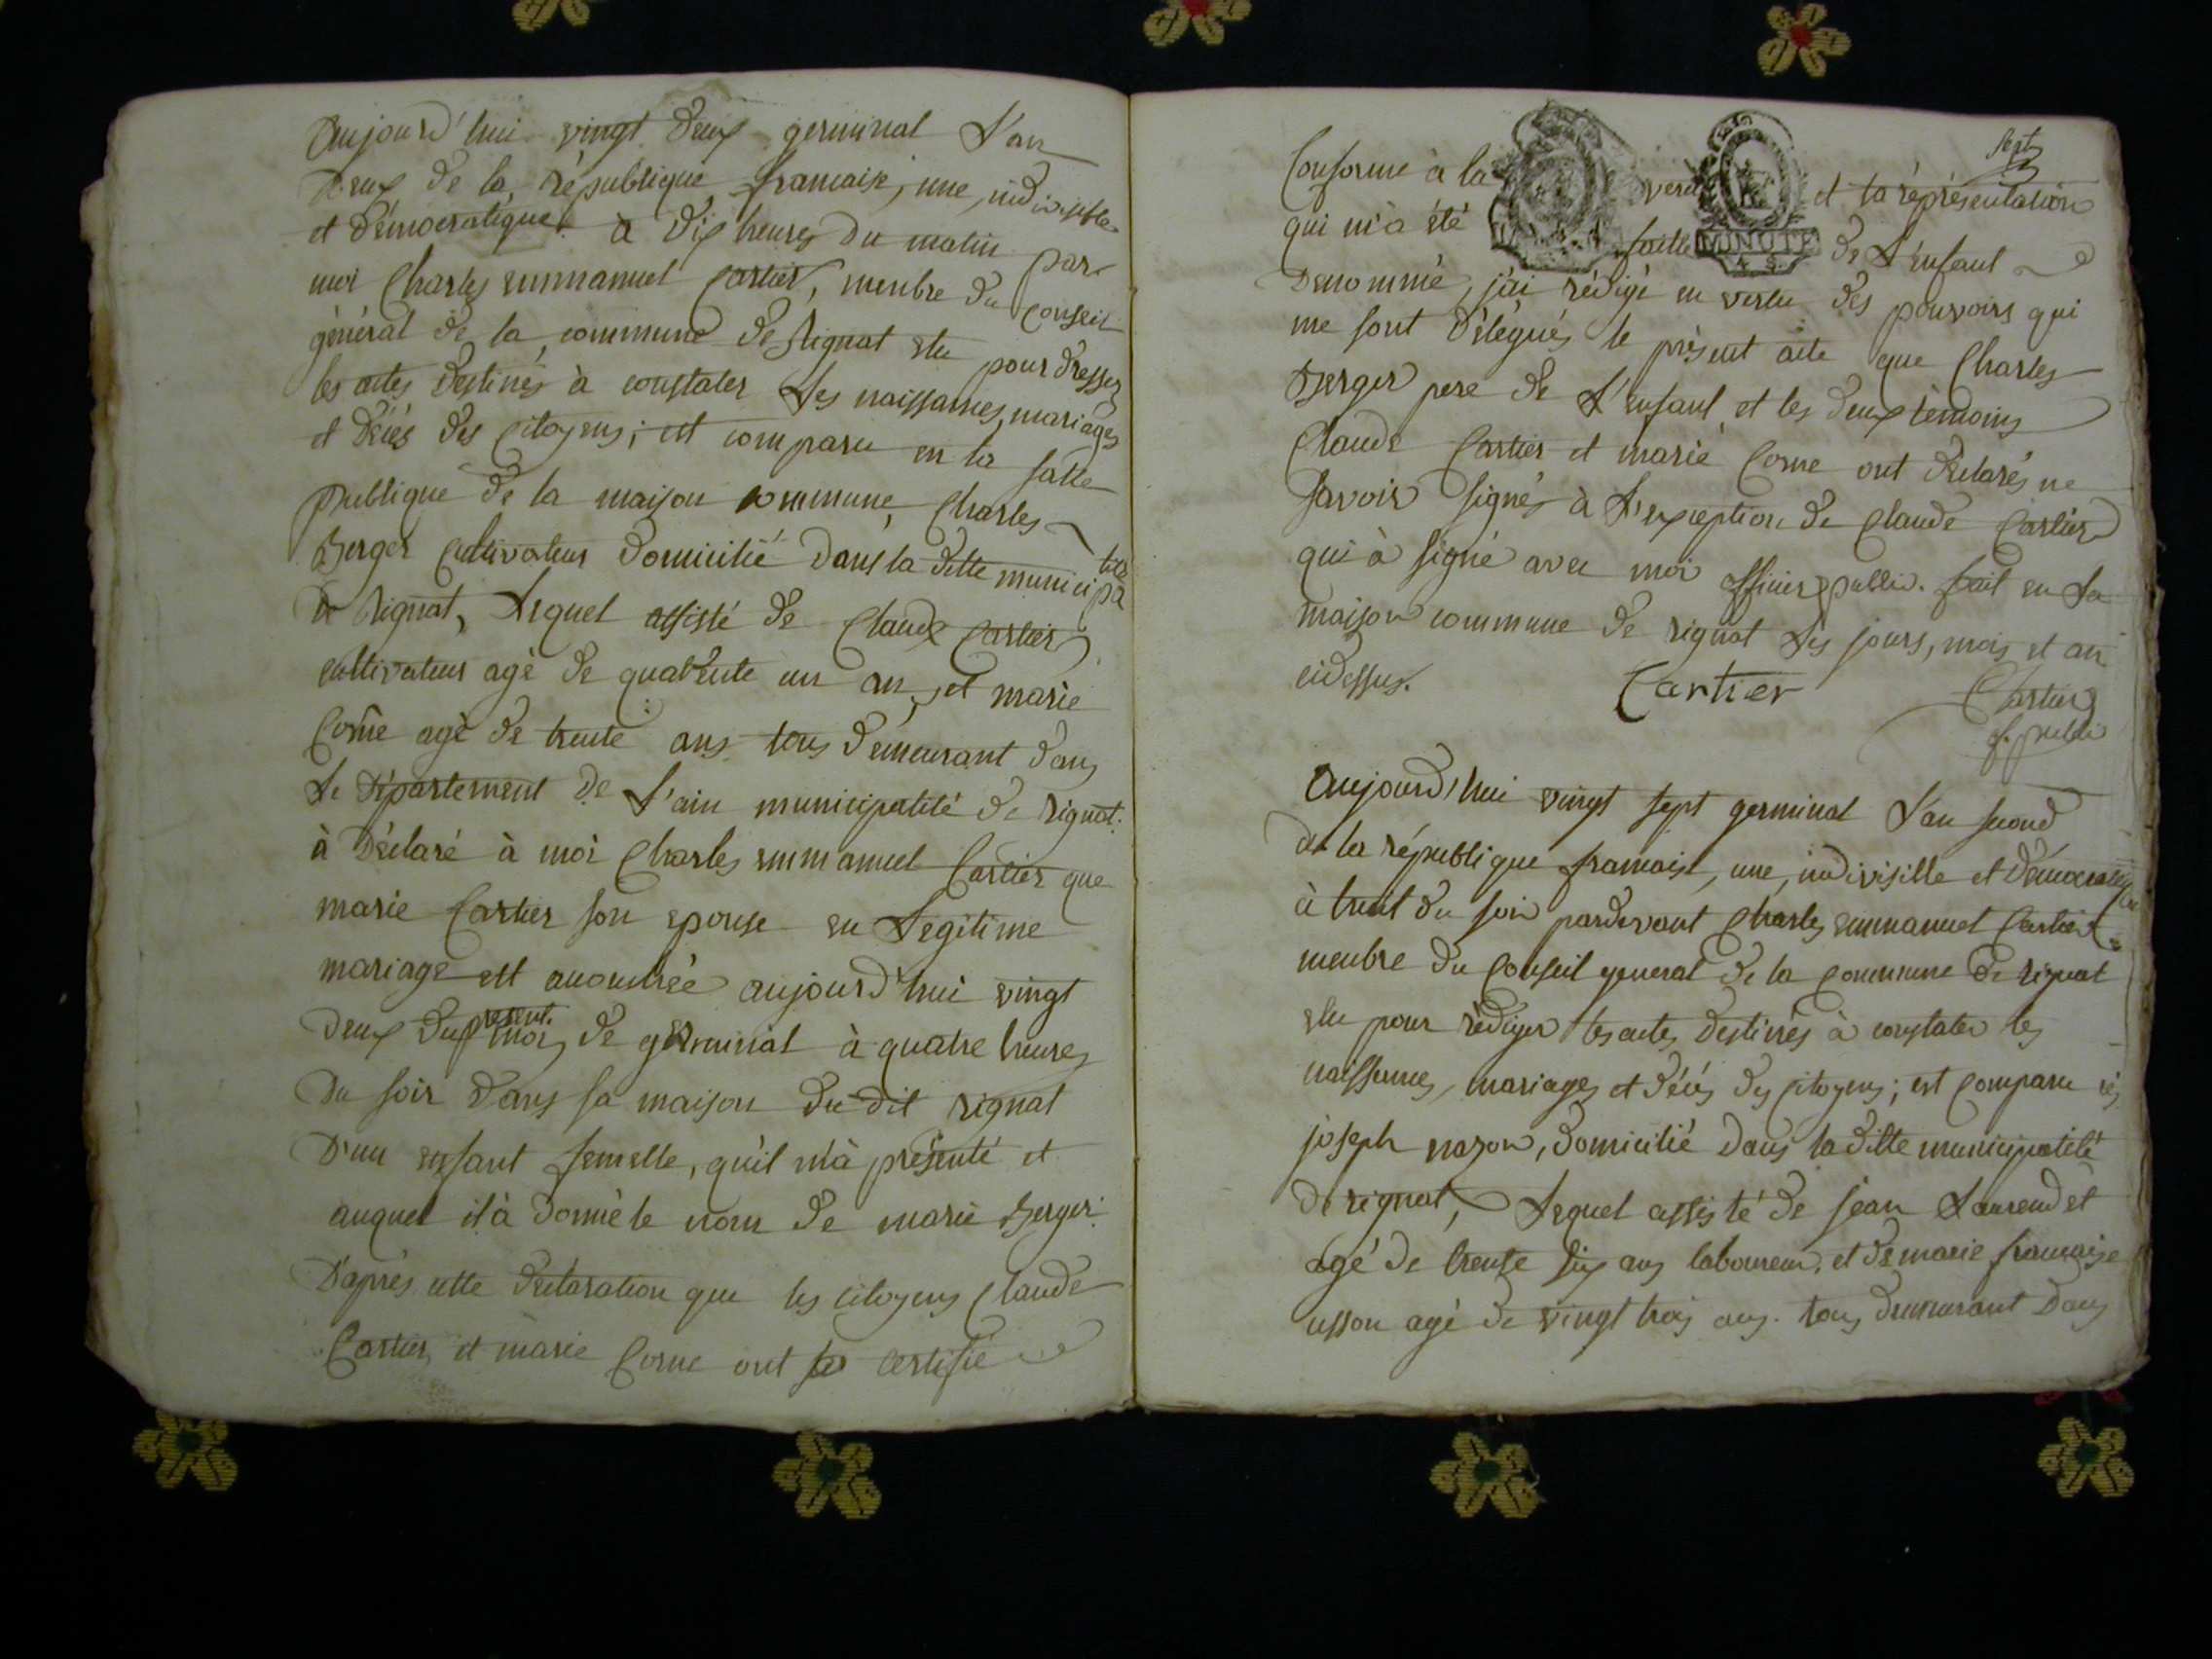 Aujourd'hui vingt deux germinal L'an
Deux de la république francaise, une, indivisible
et démocratique à dix heures du matin par
moi Charles emmanuel Cartier, membre du Conseil
général de la commune de Rignat elu pour dresser
les actes destinés à constater Les naissances, mariages
et décés des citoyens; est comparu en la salle
publique de la maison commune, Charles
Berger Cultivateur domicilié dans la ditte municipa
lité
de Rignat, Lequel assisté de Claude Cartier
cultivateur agé de quarente un an, et marie
Corne agé de trente ans tous demeurant dans
Le Département de L'ain municipalité de rignat.
à Déclaré à moi Charles emmanuel Cartier que
marie Cartier son epouse en Legitime
mariage est accouchée aujourd'hui vingt
present
deux du mois de germinal à quatre heures
Du soir Dans sa maison du dit rignat
D'un enfant femelle, qu'il m'à présenté et
auquel il à donné le nom de marie Berger.
D'aprés cette déclaration que les citoyens Claude
Cartier, et marie Corne ont certifié
sept
Conforme à la verité et la représentation
qui m'a été faitte de L'enfant
MINUTE
4 S.
Denommé, j'ai rédigé en vertu des pouvoirs qui
me sont délégués le présent acte que Charles
Berger pere de L'enfant et les deux témoins
Claude Cartier et marie Corne ont declarés ne
savoir signés à L'exception de Claude Cartier
qui à signé avec moi officier public. fait en La
maison commune de rignat Les jours, mois et an
cidessus. Cartier Cartier
of. public
Aujourd'hui vingt sept germinal L'an second
de la république francaise, une, indivisible et démocratique
à huit du soir pardevant Charles emmanuel Cartier
membre du Conseil general de la Commune de rignat
elu pour rédiger les actes destinés à constater les
naissances, mariages et décés des citoyens; est comparu
joseph nazon, domicilié dans la ditte municipalité
de rignat, Lequel assisté de jean Laurend et
agé de trente six ans laboureur, et de marie francaise
usson agé de vingt trois ans. tous demeurant Dans